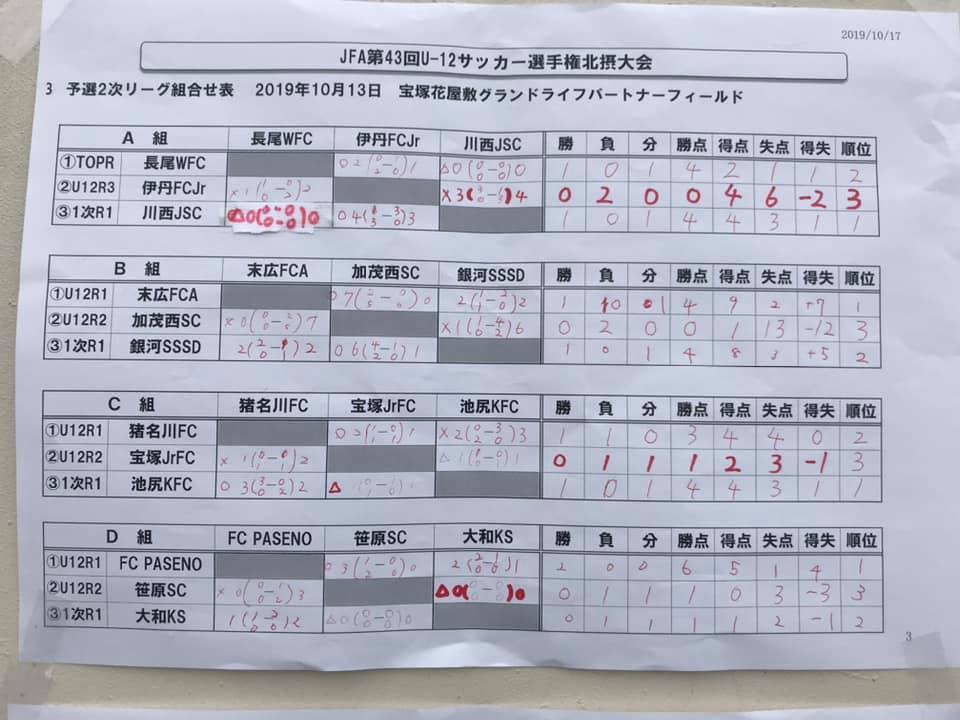 2019/10/17
JFA第43回U-12サッカー選手権北摂大会
3 予選2次リーグ組合せ表 2019年10月13日 宝塚花屋敷グランドライフパートナーフィールド
A 組 長尾WFC 伊丹FCJr 川西JSC 勝 負 分 勝点 得点 失点 得失 順位
①TOPR 長尾WFC 0 2(0/2-1/0)1 △0(0/0-0/0)0 1 0 1 4 2 1 1 2
②U12R3 伊丹FCJr ×1(1/0-0/2)2 ×3(3/0-1/3)4 0 2 0 0 4 6 -2 3
③1次R1 川西JSC △0(0/0-0/0)0 0 4(-3/0)3 1 0 1 4 4 3 1 1
B 組 末広FCA 加茂西SC 銀河SSSD 勝 負 分 勝点 得点 失点 得失 順位
①U12R1 末広FCA 0 7(2/5-0/0)0 2(1/1-2/0)2 1 0 1 4 9 2 +7 1
②U12R2 加茂西SC ×0(0/0-2/5)7 ×1(1/0-4/2)6 0 2 0 0 1 13 -12 3
③1次R1 銀河SSSD 2(2/0-1/1)2 0 6(4/2-1/0)1 1 0 1 4 8 3 +5 2
C 組 猪名川FC 宝塚JrFC 池尻KFC 勝 負 分 勝点 得点 失点 得失 順位
①U12R1 猪名川FC 0 2(1/1-0/1)1 ×2(0/2-3/0)3 1 1 0 3 4 4 0 2
②U12R2 宝塚JrFC ×1(0/1-1/1)2 △1(0/1)1 0 1 1 1 2 3 -1 3
③1次R1 池尻KFC 0 3(3/0-0/2)2 △1(0/1-1/0)1 1 0 1 4 4 3 1 1
D 組 FC PASENO 笹原SC 大和KS 勝 負 分 勝点 得点 失点 得失 順位
①U12R1 FC PASENO 0 3(1/2-0/0)0 2(2/0-1/0)1 2 0 0 6 5 1 4 1
②U12R2 笹原SC ×0(0/0-1/2)3 △0(0/0-0/0)0 0 1 1 1 0 3 -3 3
③1次R1 大和KS 1(1/0)2 △0(0/0-0/0)0 0 1 1 1 1 2 -1 2
3